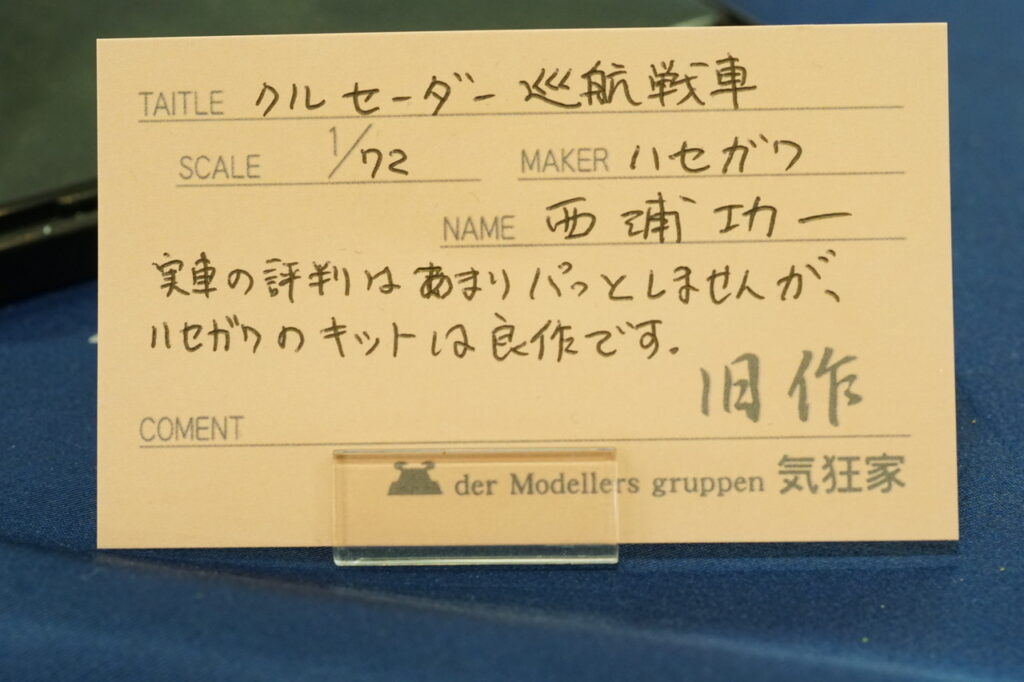 TAITLE クルセーダー巡航戦車
SCALE 1/72 MAKER ハセガワ
NAME 西浦功一
実車の評判はあまりパっとしませんが、
ハセガワのキットは良作です.
旧作
COMENT
der Modellers gruppen 気狂家